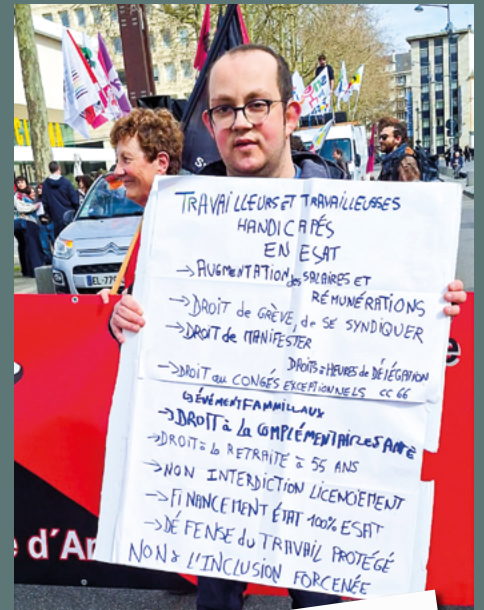 TRAVAILLEURS ET TRAVAILLEUSES
HANDICAPÉS
EN ESAT
→ AUGMENTATION des SALAIRES ET
RÉMUNÉRATIONS
→ DROIT de GRÈVE, de SE SYNDIQUER
→ DROIT de MANIFESTER
DROITS à HEURES de DÉLÉGATION
→ DROIT au CONGÉS EXCEPTIONNELS CC 66
ÉVÉNEMENT FAMILLAUX
→ DROIT à la COMPLÉMENTAIRE SANTÉ
→ DROIT à la RETRAITE à 55 ANS
→ NON INTERDICTION LICENCIEMENT
→ FINANCEMENT ÉTAT 100% ESAT
→ DÉFENSE du TRAVAIL PROTÉGÉ
NON à L'INCLUSION FORCENÉE
e d'Ar